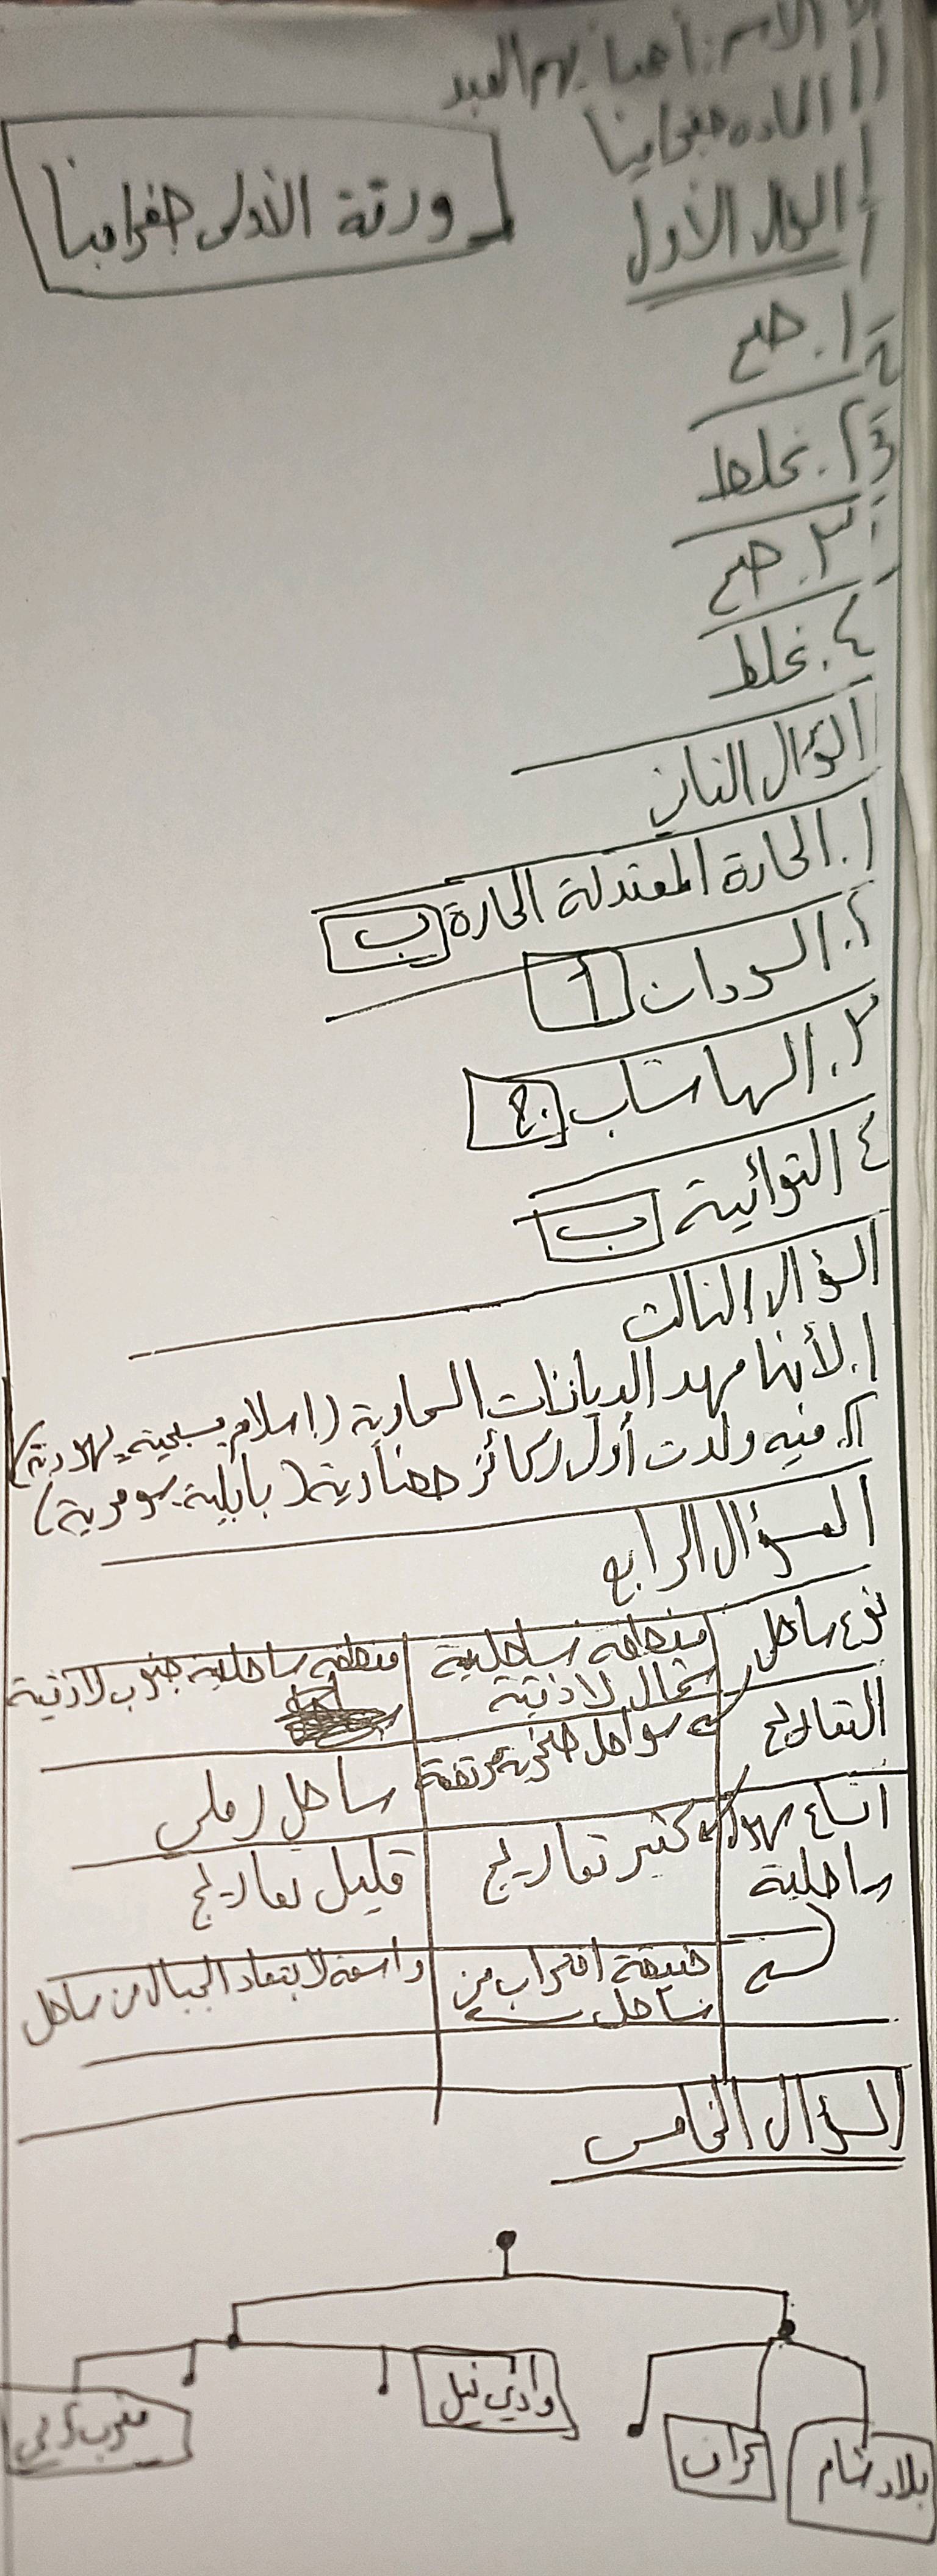 الاسم: احنا يهم العبد
المادة جغرافيا
السؤال الأول
ورقة الأولى جغرافيا
١. صح
٢. غلط
٣. صح
٤. غلط
السؤال الثاني
١. الحارة المعتدلة الحارة ب
٢. السودان أ
٣. الهاستاب ج
٤ التوائية ب
السؤال الثالث
١. لأنها مهد الديانات السماوية (إسلام مسيحية يهودية)
٢. فيه ولدت أول ركائز حضارية (بابلية. سومرية)
السؤال الرابع
نوع ساحل منطقة ساحلية شمال لاذقية منطقة ساحلية جنوب لاذقية
التعاريج سواحل صخرية مرتفعة ساحل رملي
اتساع سهول ساحلية كثير تعاريج قليل تعاريج
ضيقة اقتراب من ساحل واسعة لابتعاد الجبال من ساحل
السؤال الخامس
بلاد شام
وادي نيل
مغرب عربي